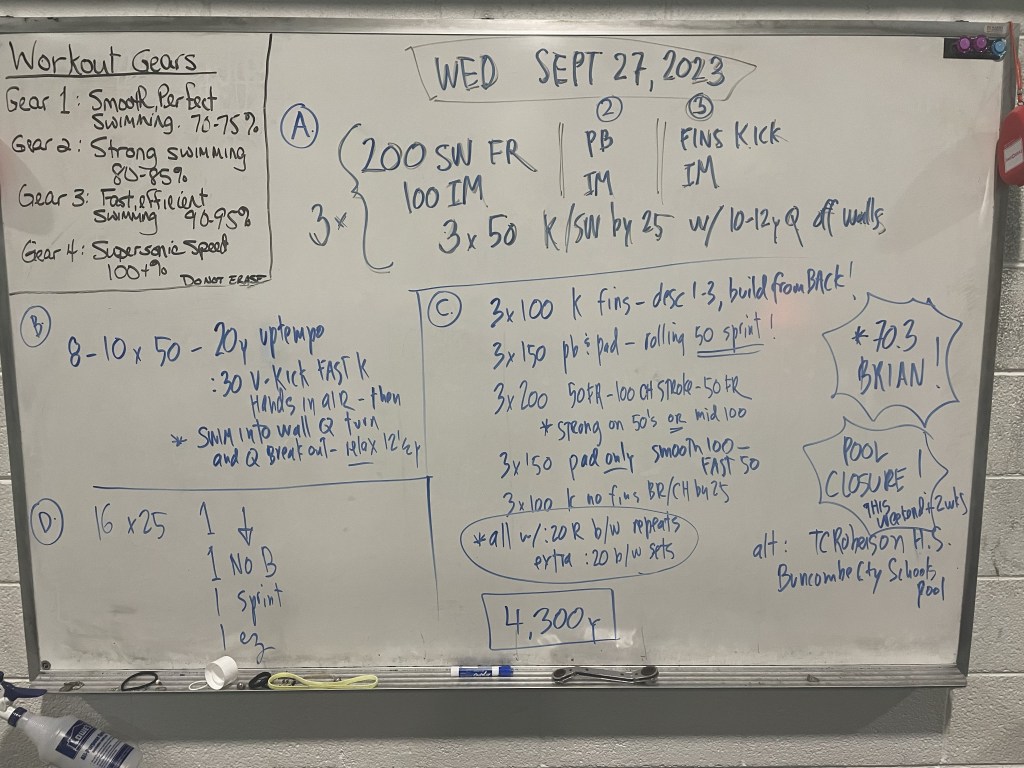 Workout Gears
Gear 1: Smooth, Perfect
Swimming. 70-75%
Gear 2: Strong swimming
80-85%
Gear 3: Fast, efficient
swimming 90-95%
Gear 4: Supersonic Speed
100+%
DO NOT ERASE
WED SEPT 27, 2023
A.
3x
② ③
200 SW FR || PB || FINS KICK
100 IM || IM || IM
3x50 K/SW by 25 w/ 10-12y Q off walls
B.
8-10 x 50 - 20y uptempo
:30 V-Kick FAST K
Hands in aIR - then
* SWIM into wall Q turn
and Q Breakout - relax 12 1/2 y
C.
3x100 K fins - desc 1-3, build from BACK!
3x150 pb & pad - rolling 50 sprint!
3x200 50 FR - 100 CH STROKE - 50 FR
* strong on 50's OR mid 100
3x150 pad only smooth 100 -
FAST 50
3x100 K no fins BR/CH by 25
*all w/ :20 R b/w repeats
extra :20 b/w sets
4,300y
D.
16 x 25 1 ↓
1 No B
1 Sprint
1 ez
* 70.3
BRIAN!
POOL
CLOSURE!
THIS
weekend + 2wks
alt: TC Roberson H.S.
Buncombe Cty Schools
pool